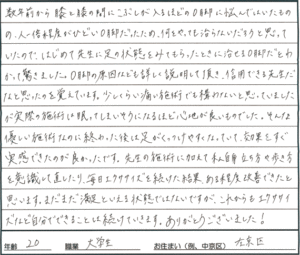 数年前から膝と膝の間にこぶしが入るほどのO脚に悩んではいたもの
の、人一倍猫背がひどいO脚だったため、何をしても治らないだろうと思っ
ていたので、はじめて先生に足の状態をみてもらったときに治せるO脚だとわ
かって驚きました。O脚の原因なども詳しく説明して頂き、信用できる先生だ
なと思ったのを覚えています。少しくらい痛い施術でも構わないと思っていました
が実際の施術は眠ってしまいそうになるほど心地が良いものでした。そんな
優しい施術なのに終わった後は足がくっつきやすくなっていて、効果をすぐ
実感できたのが良かったです。先生の施術に加えて私自身、立ち方や歩き方
を意識して直したり、毎日エクササイズを続けた結果、ある程度改善できたと
思います。まだまだ満足といえる状態ではないですが、これからもエクササイ
ズなど自分でできることは続けていきます。ありがとうございました！
年齢 20 職業 大学生 お住まい(例、中京区) 左京区